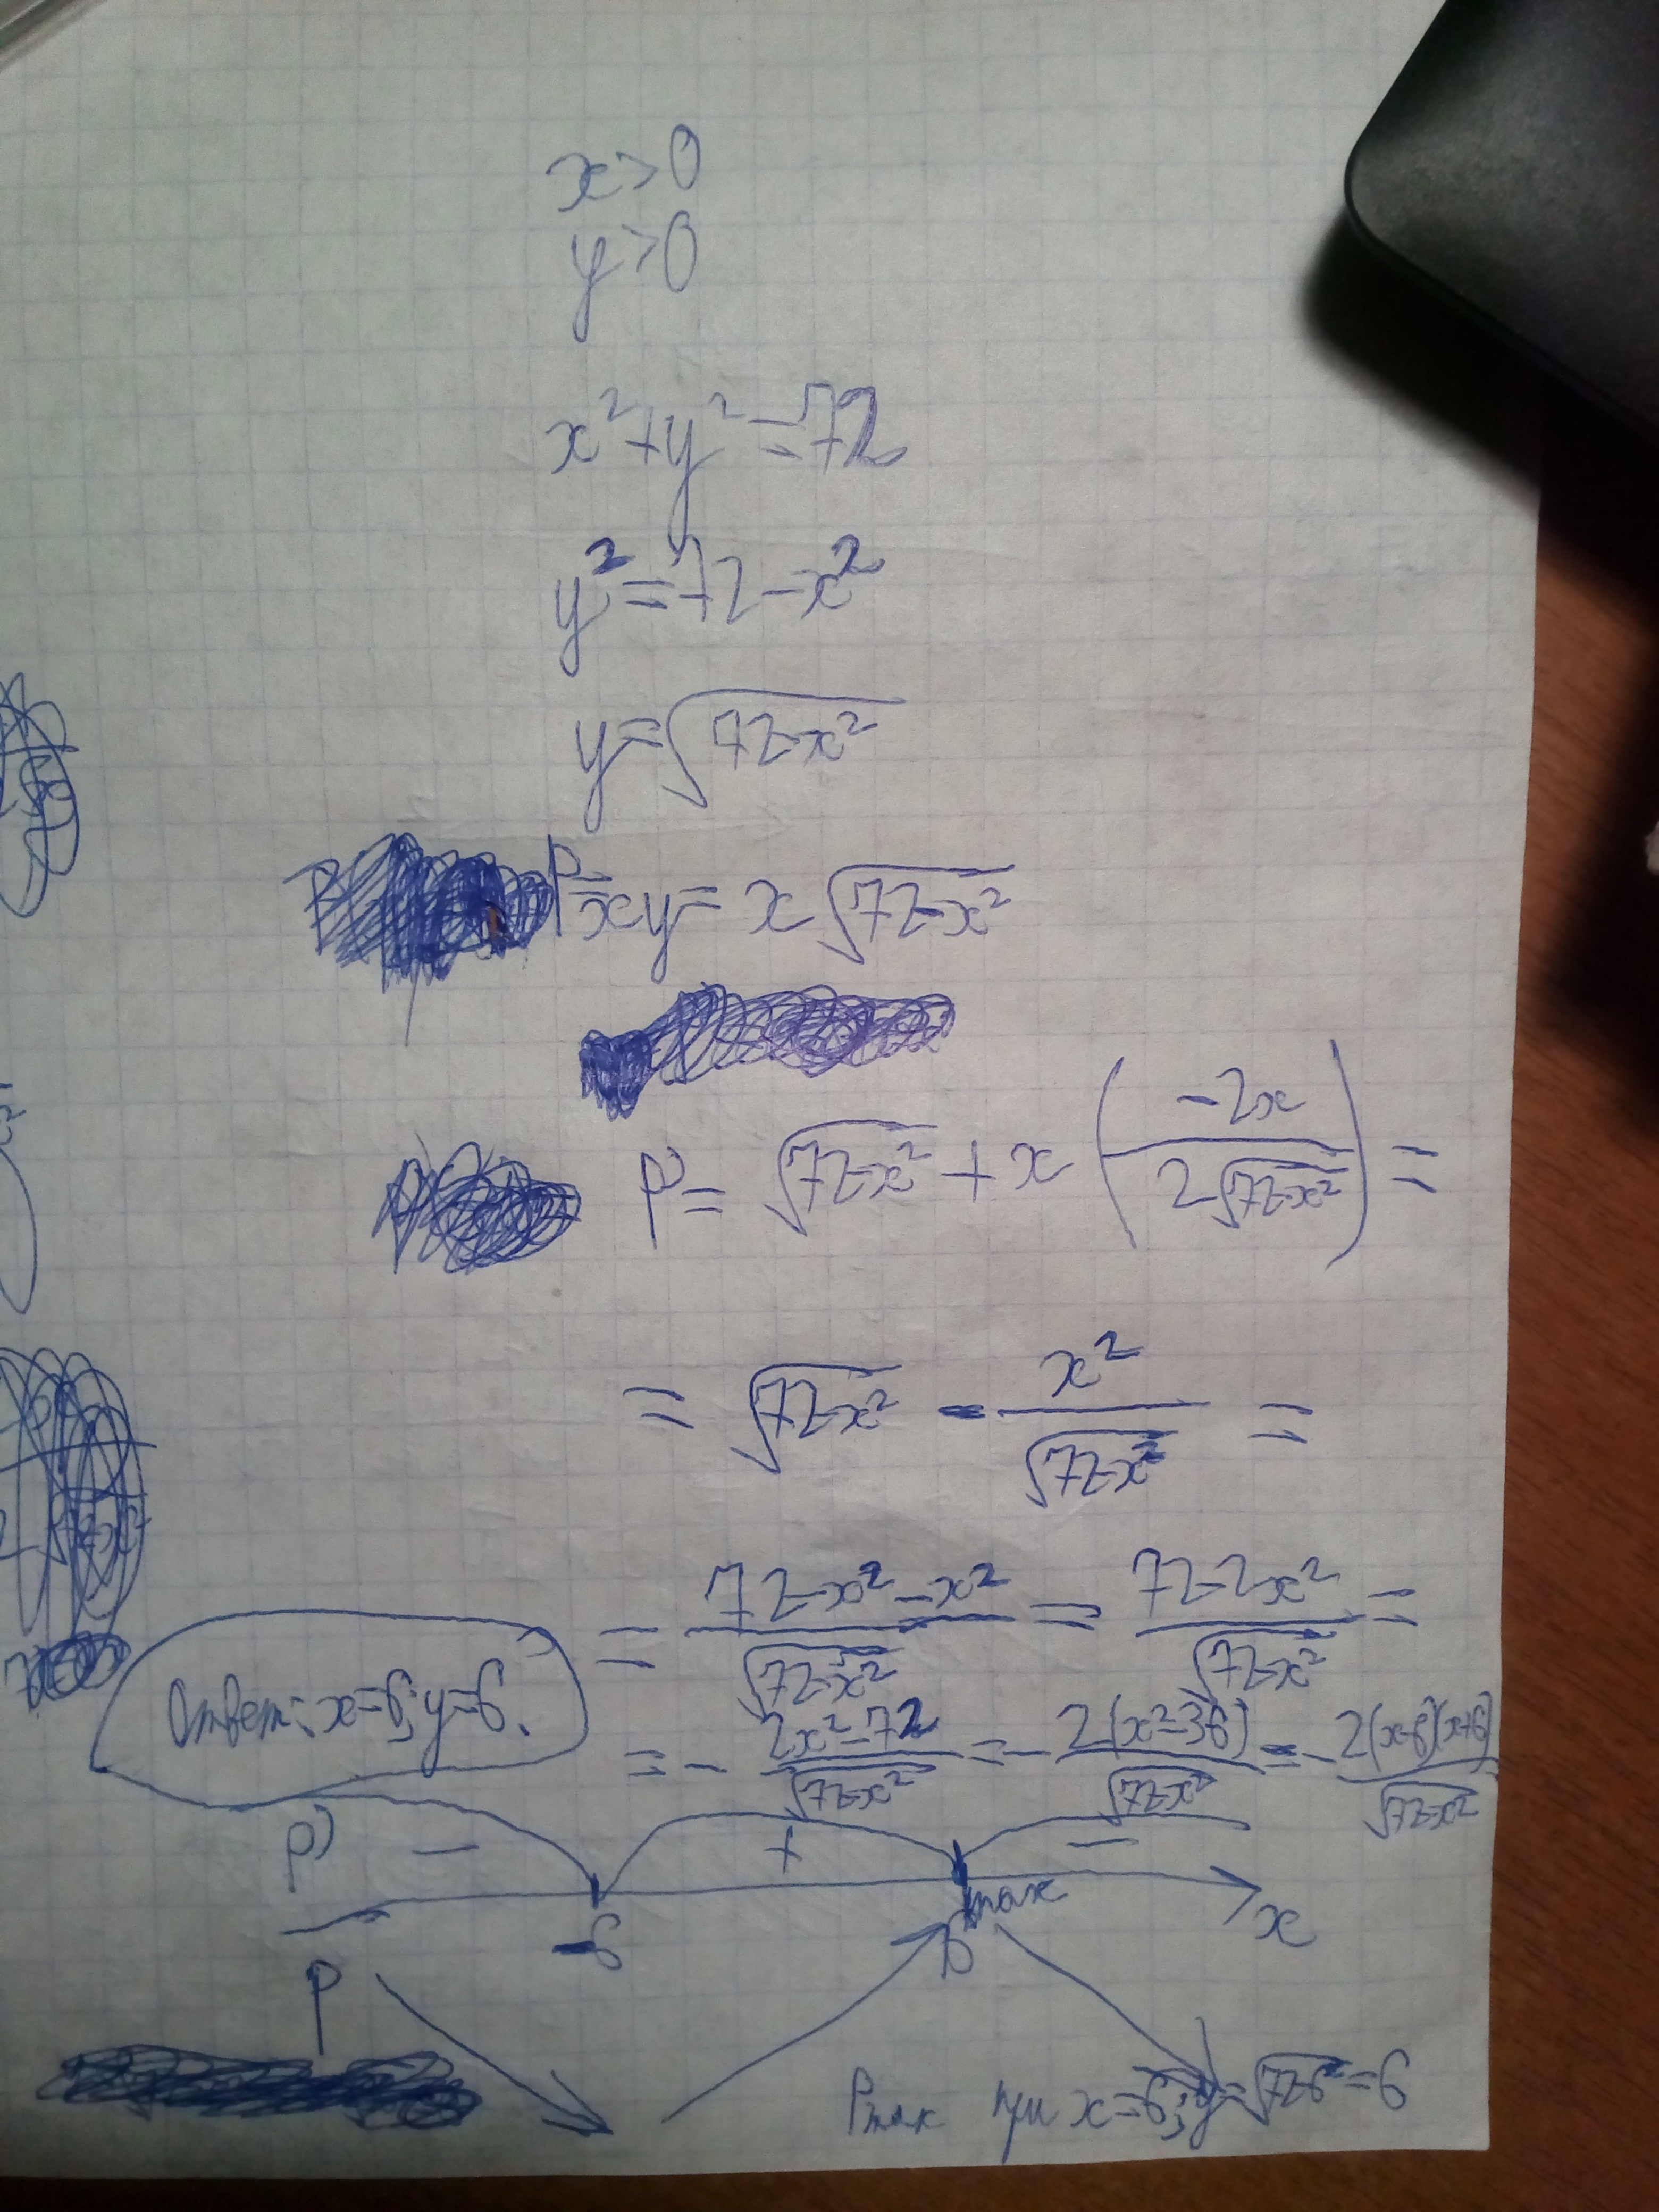 x>0
y>0
x²+y²=72
y²=72-x²
y=√(72-x²)
P=xy=x√(72-x²)
P'=√(72-x²)+x(-2x/(2√(72-x²)))=
=√(72-x²)-x²/√(72-x²)=
=(72-x²-x²)/√(72-x²)=(72-2x²)/√(72-x²)=
=-(2x²-72)/√(72-x²)=-2(x²-36)/√(72-x²)=-2(x-6)(x+6)/√(72-x²)
Ответ: x=6; y=6.
P' - + -
-6 6 max x
P
Pmax при x=6; y=√(72-6²)=6